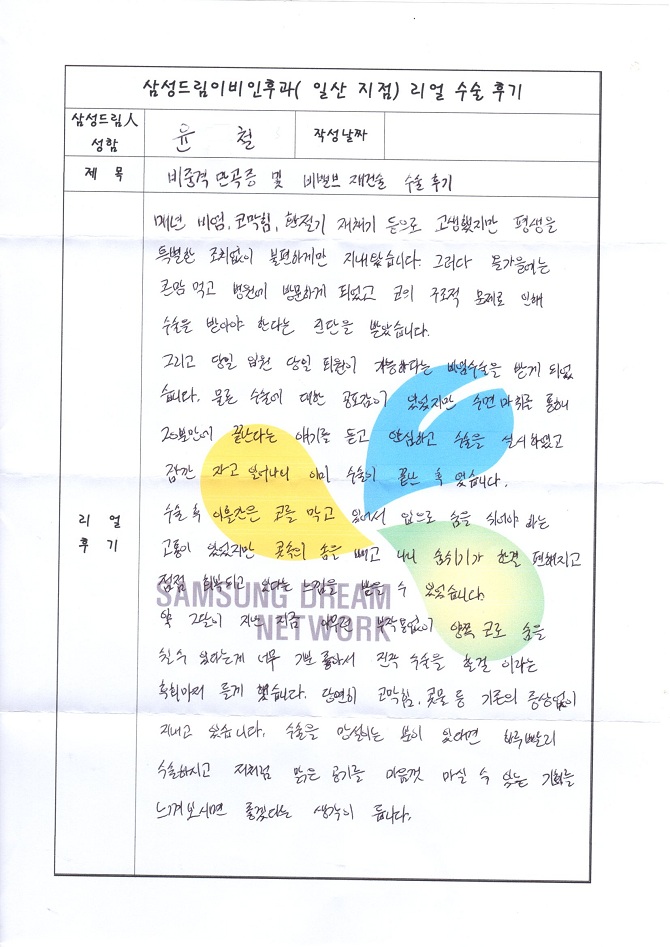 삼성드림이비인후과( 일산 지점) 리얼 수술 후기
삼성드림人 성함
윤 철
작성날짜
제 목
비중격 만곡증 및 비밸브 재건술 수술 후기
리 얼 후 기
매년 비염, 코막힘, 환절기 재채기 등으로 고생했지만 평생을
특별한 조치없이 불편하게만 지내왔습니다. 그러다 올가을에는
큰맘 먹고 병원에 방문하게 되었고 코의 구조적 문제로 인해
수술을 받아야 한다는 진단을 받았습니다.
그리고 당일 입원 당일 퇴원이 가능하다는 비염수술을 받게 되었
습니다. 물론 수술에 대한 공포감이 있었지만 수면마취를 통해
20분만에 끝난다는 얘기를 듣고 안심하고 수술을 실시하였고
잠깐 자고 일어나니 이미 수술이 끝난 후 였습니다.
수술 후 이틀간은 코를 막고 있어서 입으로 숨을 쉬어야 하는
고통이 있었지만 콧속의 솜을 빼고 나니 숨쉬기가 한결 편해지고
점점 회복되고 있다는 느낌을 받을 수 있었습니다.
약 2달이 지난 지금 아무런 부작용없이 양쪽 코로 숨을
쉴 수 있다는게 너무 기분 좋아서 진작 수술을 할걸 이라는
후회마저 들게 했습니다. 당연히 코막힘, 콧물 등 기존의 증상없이
지내고 있습니다. 수술을 망설이는 분이 있다면 하루빨리
수술하시고 저처럼 맑은 공기를 마음껏 마실 수 있는 기회를
느껴보시면 좋겠다는 생각이 듭니다.
SAMSUNG DREAM
NETWORK